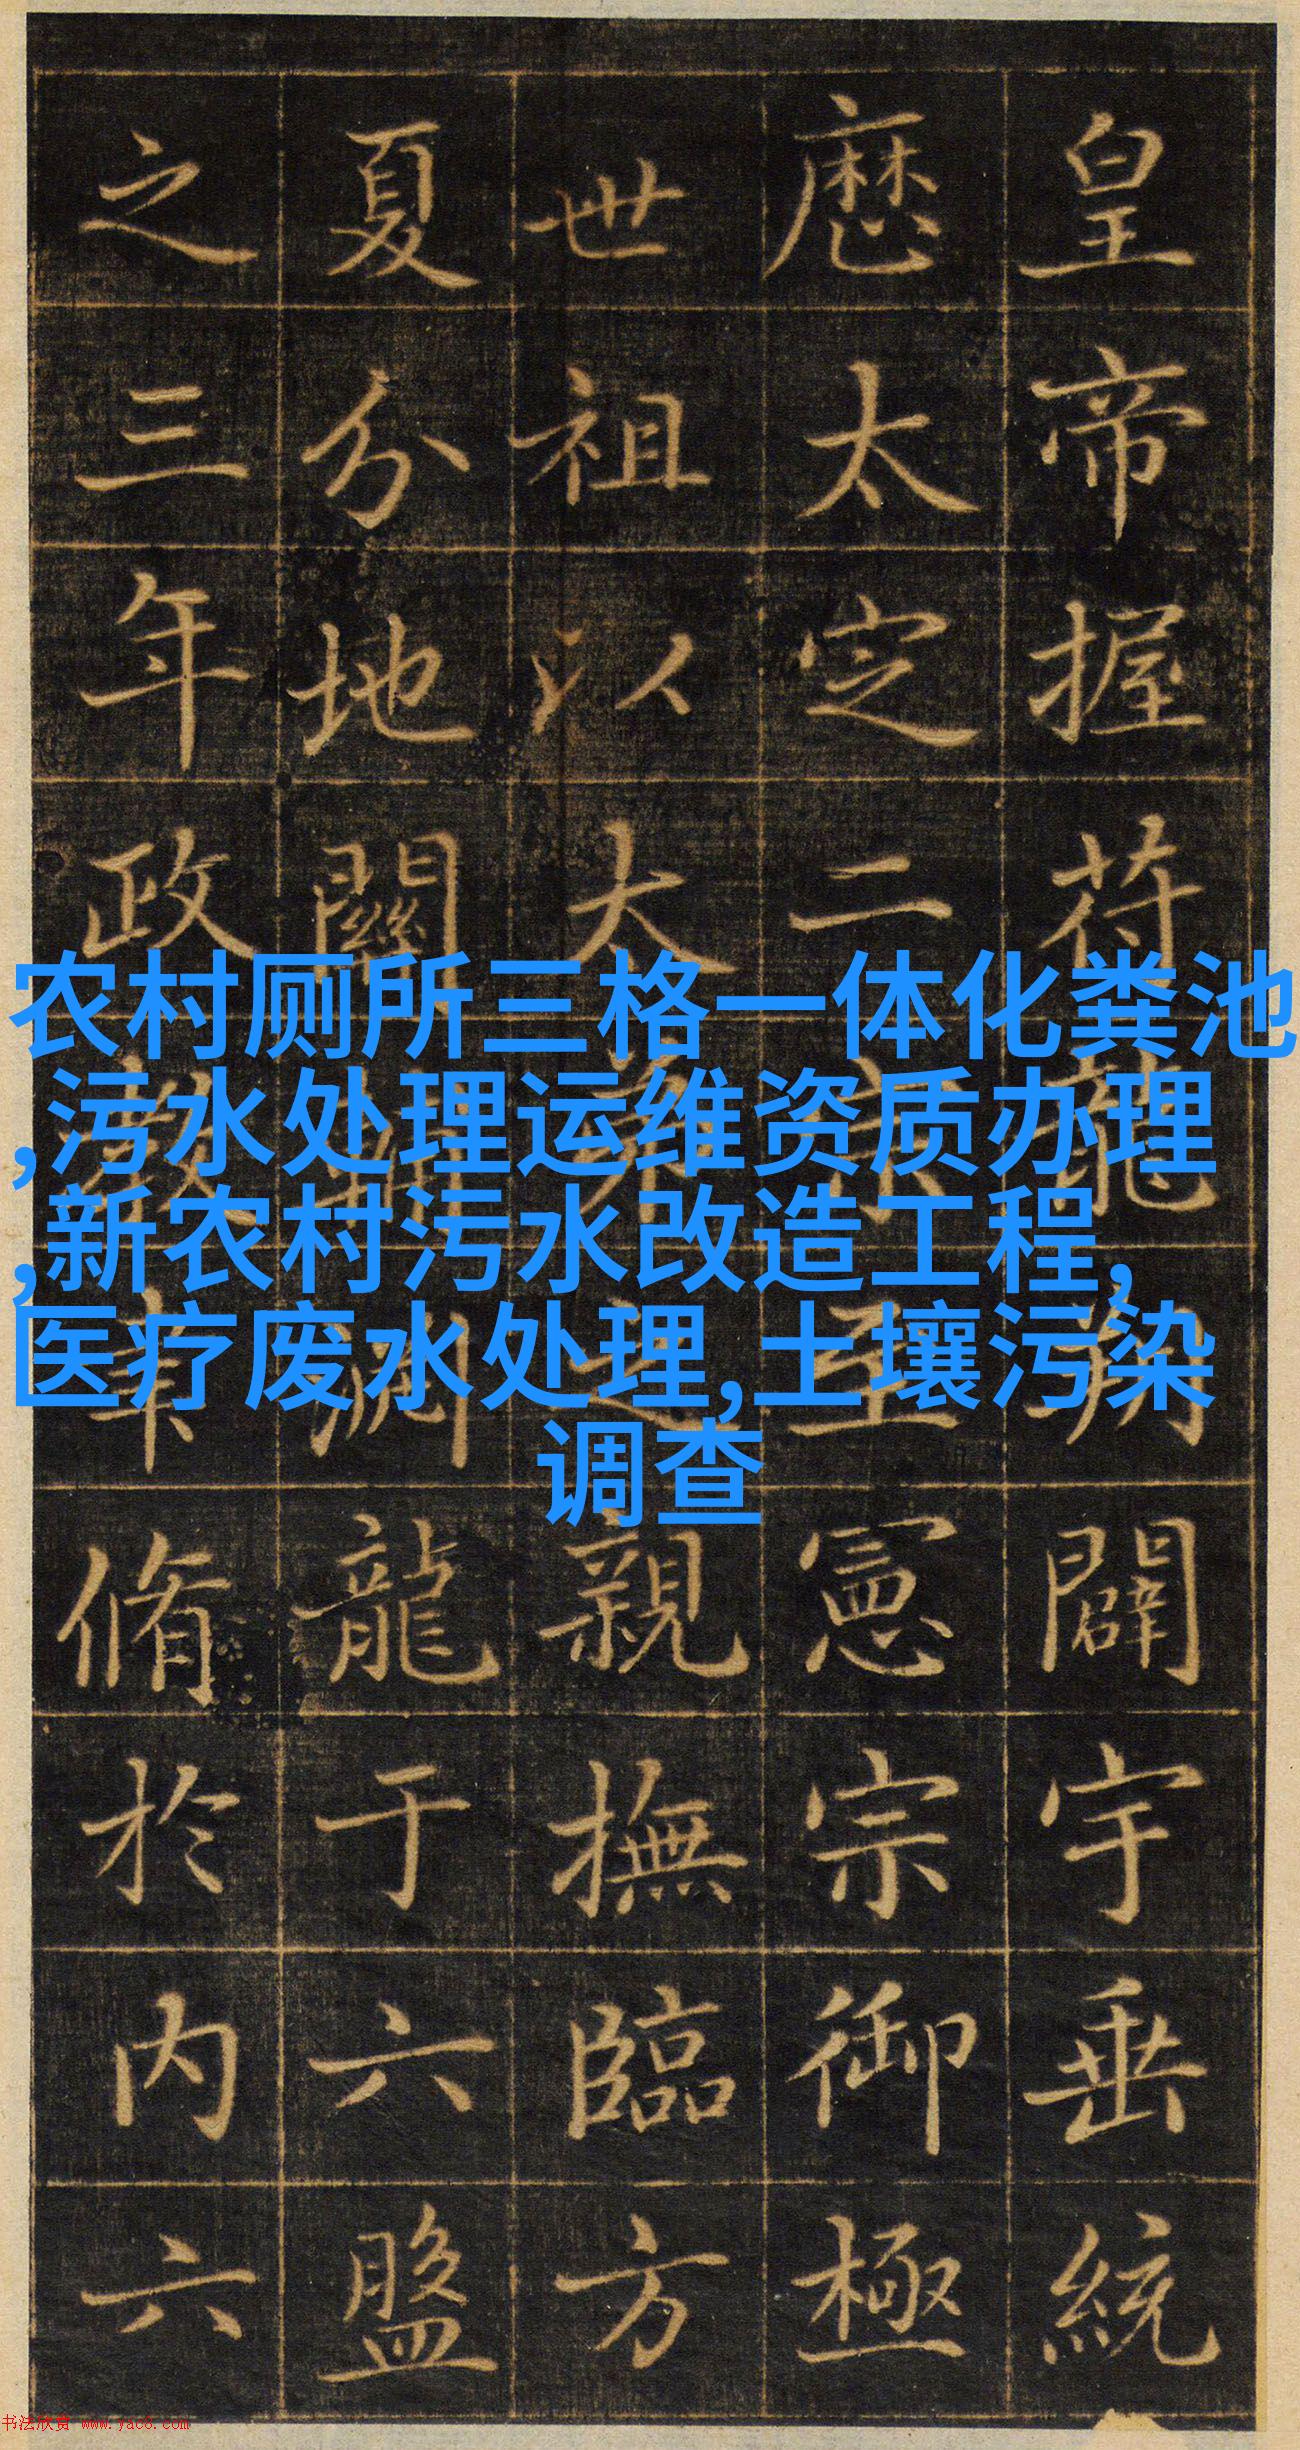 皇帝握符龍翔闢宇垂統
太定二宗至憲宗御極
世祖以太弟之親撫臨方
夏分地關淵龍于六盤
之三年政教聿脩於内六
农村厕所三格一体化粪池
,污水处理运维资质办理
,新农村污水改造工程,
医疗废水处理,土壤污染
调查
书法欣赏 www.yac8.com